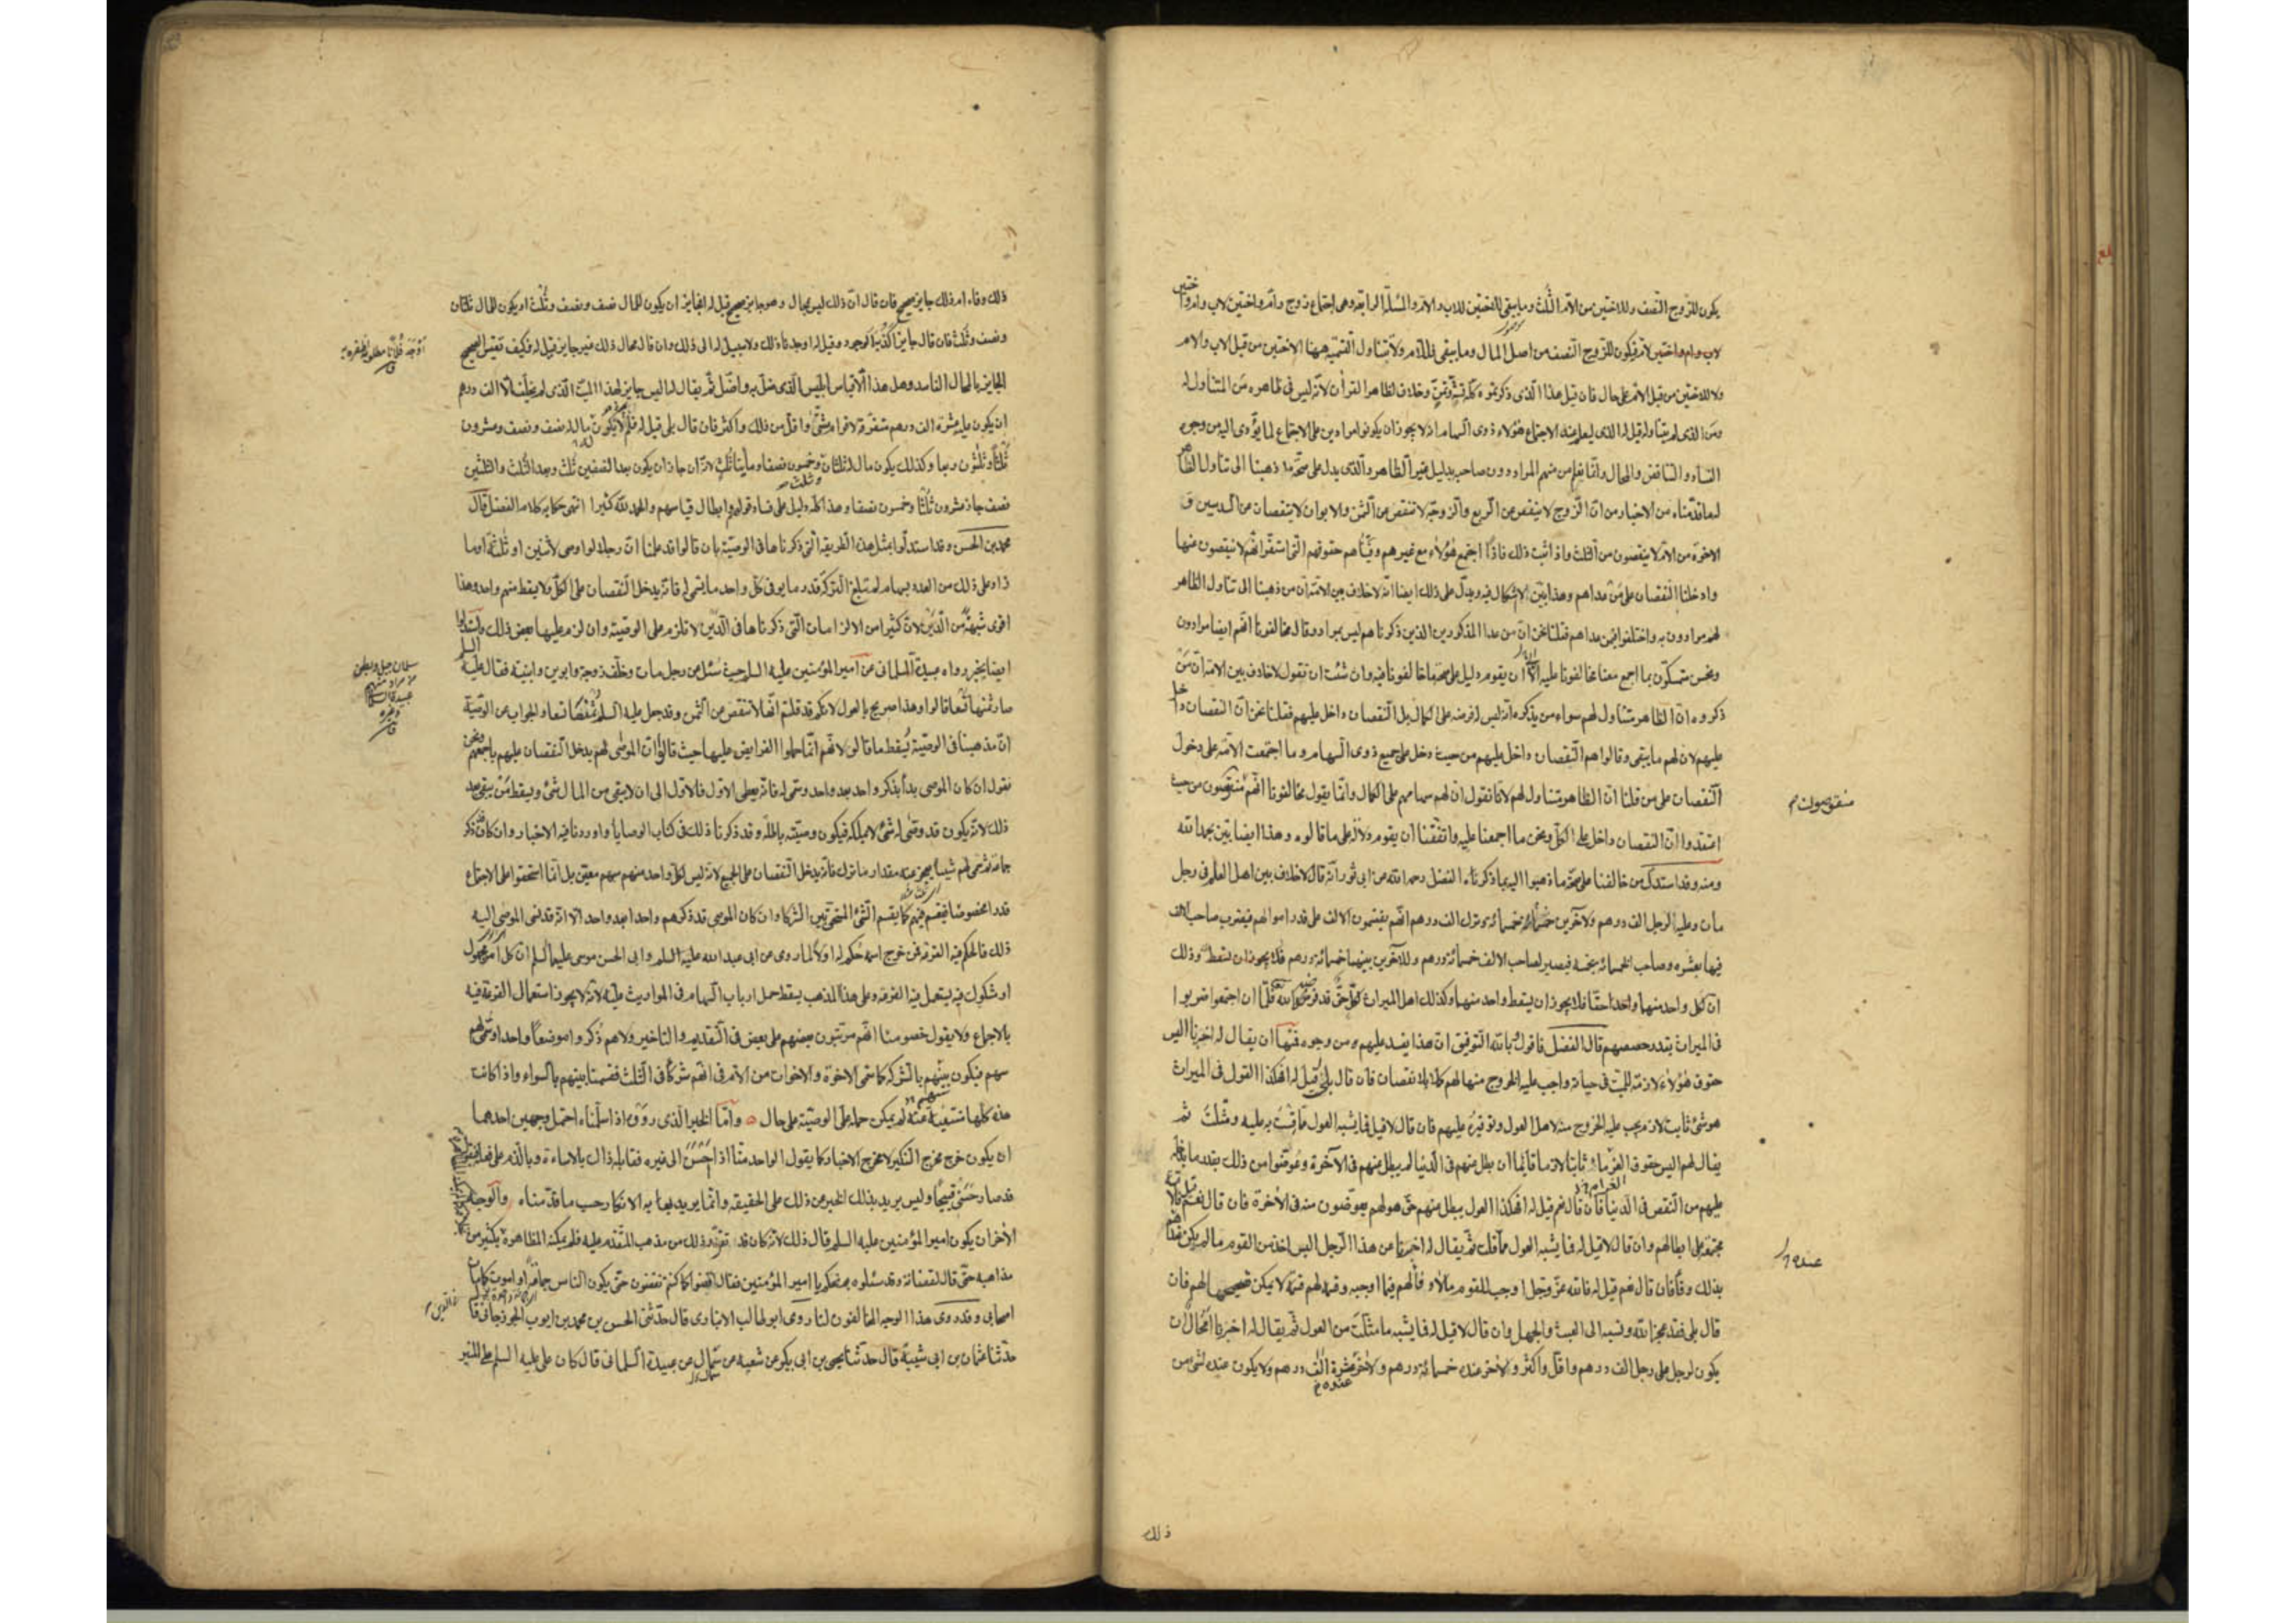 يكون للزوج النصف وللاختين من الام الثلث وما يبقى للاختين للاب والام والمسئلة الرابعة وهى اجتماع زوج وام واختين لاب وام واختين
لاب وام واختين لام فيكون للزوج النصف من اصل المال وما يبقى فللام ولا يتناول التسمية ههنا الاختين من قبل الاب والام
ولا للاختين من قبل الام على حال فان قيل هذا الذى ذكرتموه كله وخلاف لظاهر القرآن لانه ليس فى ظاهره من المتناول له
ومن الذى لم يتناوله قيل له الذى يعلم عند الاجتماع هؤلاء ذوى السهام اذ لا يجوز ان يكونوا مرادين على الاجتماع لما يؤدى اليه من وجوه
الفساد والتناقض والمحال وانما يعلم من منهم المراد دون صاحبه بدليل غير الظاهر والذى يدل على صحة ما ذهبنا الى تناول الظاهر
له ما قدمناه من الاخبار من ان الزوج لا ينقص من الربع والزوجة لا تنقص من الثمن والابوان لا ينقصان من السدسين و
الاخوة من الام لا ينقصون من الثلث واذا ثبت ذلك فاذا اجتمع هؤلاء مع غيرهم وفيناهم حقوقهم التى استقر انهم لا ينقصون منها
وادخلنا النقصان على من عداهم وهذا بين لا اشكال فيه ويدل على ذلك ايضا انه لا خلاف بين الامة ان من ذهبنا الى تناول الظاهر
لهم مرادون به واختلفوا فيمن عداهم فقلنا نحن ان من عدا المذكورين الذين ذكرناهم ليس بمراد وقال مخالفونا انهم ايضا مرادون
ونحن متمسكون بما اجمع معنا مخالفونا عليه الى ان يقوم دليل على صحة ما خالفونا فيه وان شئت ان تقول لا خلاف بين الامة ان من
ذكروه ان الظاهر متناول لهم سواء من يذكره انه ليس له فرضه على الكمال بل النقصان داخل عليهم فقلنا نحن ان النقصان داخل
عليهم لان لهم ما يبقى وقالوا هم النقصان داخل عليهم من حيث دخل على جميع ذوى السهام وما اجتمعت الامة على دخول
النقصان على من قلنا ان الظاهر متناول لهم لانا نقول ان لهم سهامهم على الكمال وانما يقول مخالفونا انهم منقوصون من حيث
منقوصون
اعتقدوا ان النقصان داخل على الكل ونحن ما اجمعنا عليه واتفقنا ان يقوم دلالة على ما قالوه وهذا ايضا بين بحمد الله
ومنه وقد استدل من خالفنا على صحة ما ذهبوا اليه بما ذكرناه الفضل رحمه الله من ابى ثور انه قال لا خلاف بين اهل العلم فى رجل
مات وعليه لرجل الف درهم ولاخرين خمسمائة خمسمائة وترك الف درهم انهم يقتسمون الالف على قدر اموالهم فيضرب صاحب الالف
فيها بعشرة وصاحب الخمسمائة بخمسة فيصير لصاحب الالف خمسمائة درهم وللآخرين بينهما خمسمائة درهم فلا يجوز ان يسقط وذلك
ان كل واحد منهما واخذ احقا فلا يجوز ان يسقط واحد منهما وكذلك اهل الميراث كل حق قد فرضه الله فلما ان اجتمعوا ضربوا
فى الميراث بقدر حصصهم قال الفضل فاقول بالله التوفيق ان هذا يفسد عليهم من وجوه فمنها ان يقال له اخبرنا اليس
حقوق هؤلاء لازمة للميت فى حياته واجب عليه الخروج منها لهم كملا بلا نقصان فان قال بلى قيل له افهكذا القول فى الميراث
هو شىء ثابت لازم يجب عليه الخروج منه لاهل العول وتوفيره عليهم فان قال لا قيل فما يشبه العول ما قست به عليه ومثلت ثم
يقال لهم اليس حقوق الغرماء ثابتا لازما قائما ان بطل منهم فى الدنيا لم يبطل منهم فى الآخرة وعوضوا من ذلك بقدر ما
عليهم من النقص فى الدنيا فان قال نعم قيل له افهكذا العول يبطل منهم حتى هو لهم يعوضون منه فى الآخرة فان قال نعم
على ابطالهم وان قال لا قيل له فما يشبه العول ما قلت ثم يقال له اخبرنا عن هذا الرجل اليس اخذ من القوم ما لم يكن عنده
عنده
بذلك وفاء فان قال نعم قيل له فالله عز وجل اوجب للقوم مالا وفا لهم فيما اوجبه وقسم لهم قسمة لا يمكن تصحيحها لهم فان
قال بلى فقد عجز الله ونسبه الى العبث والجهل وان قال لا قيل له فما يشبه ما مثلت من العول ثم يقال له اخبرنا امحال ان
يكون لرجل على رجل الف درهم واقل واكثر ولآخر عنده خمسمائة درهم ولآخر عشرة الف درهم ولا يكون عنده لشىء من
ذلك
ذلك وفاء ام ذلك جايز صحيح فان قال ان ذلك ليس بمحال وهو جايز صحيح قيل له افجايز ان يكون للمال نصف ونصف وثلث او يكون للمال ثلثان
ونصف وثلث فان قال جايز اكذبه الوجود وقيل له اوجدنا ذلك ولا سبيل له الى ذلك وان قال محال ذلك غير جايز قيل له فكيف تقيس الصحيح
الجايز بالمحال الفاسد وهل هذا الا قياس ابليس الذى ضل به واضل ثم يقال له اليس جايز لهذا الميت الذى لم يخلف الا الف درهم
ان يكون عليه عشرة الف درهم متفرقة لاقوام شتى واقل من ذلك واكثر فان قال بلى قيل له فلم لا يكون ماله نصف ونصف وعشرون
ثلثا وثلثون وربعا وكذلك يكون مال له ثلثان وخمسون نصفا ومأتا ثلث لانه ان جاز ان يكون بعد النصفين ثلث وبعد الثلث والثلثين
نصف جاز عشرون ثلثا وخمسون نصفا وهذا كله دليل على فساد قولهم وابطال قياسهم والحمد لله كثيرا انتهى حكاية كلام الفضل قال
محمد بن الحسن وقد استدلوا بمثل هذه الطريقة التى ذكرناها فى الوصية بان قالوا قد علمنا ان رجلا لو اوصى لاثنين او ثلثة او ما
زاد على ذلك من العدد بسهام لم تبلغ التركة قدر ما يوفى كل واحد ما سمى له فانه يدخل النقصان على الكل ولا يسقط منهم واحد وهذا
اقوى شبهة من الدين لان كثيرا من الالزامات التى ذكرناها فى الدين لا تلزم على الوصية وان لزم عليها بعض ذلك واستدلوا
ايضا بخبر رواه عبيدة السلمانى عن امير المؤمنين عليه السلم حيث سئل عن رجل مات وخلف زوجة وابوين وابنتيه فقال عليه السلم
سلمان جبل وبطن
صار ثمنها تسعا قالوا وهذا صريح بالعول لانكم قد قلتم انها لا تنقص من الثمن وقد جعل عليه السلم ثمنها تسعا والجواب عن الوصية
ان مذهبنا فى الوصية يسقط ما قالوه لانهم انما حملوا الفرايض عليها حيث قالوا ان الموصى لهم يدخل النقصان عليهم باجمعهم ونحن
نقول ان كان الموصى بدأ بذكر واحد بعد واحد وسمى له فانه يعطى الاول فالاول الى ان لا يبقى من المال شىء ويسقط من يبقى بعد
ذلك لانه يكون قد وصى له بشىء لا يملكه فيكون وصيته باطلة وقد ذكرنا ذلك فى كتاب الوصايا واوردنا فيه الاخبار وان كان ذكر
جماعة ثم سمى لهم شيئا يعجز عنه مقدار ما ترك فانه يدخل النقصان على الجميع لانه ليس لكل واحد منهم سهم معين بل انما استحقوا على الاجتماع
قدرا مخصوصا فيقسم فيهم كما يقسم الشىء المستحق بين الشركاء وان كان الموصى قد ذكرهم واحدا بعد واحد الا انه قد نسى الموصى اليه
ذلك فالحكم فيه القرعة فمن خرج اسمه حكم له اولا لما روى عن ابى عبد الله عليه السلم وابى الحسن موسى عليهما السلم ان كل امر مجهول
او مشكوك فيه يستعمل فيه القرعة وعلى هذا المذهب يسقط حمل ارباب السهام فى المواريث عليه لانه لا يجوز استعمال القرعة فيه
بالاجماع ولا يقول خصومنا انهم مرتبون بعضهم على بعض فى التقديم والتاخير ولا هم ذكروا موضعا واحدا وسمى لهم
سهم فيكون بينهم بالشركة كما سمى الاخوة والاخوات من الام فى انهم شركاء فى الثلث فقسمنا بينهم بالسواء واذا كانت
هذه كلها منتفية عنه لم يمكن حمله على الوصية على حال واما الخبر الذى رووه اذا سلمناه احتمل وجهين احدهما
ان يكون خرج مخرج النكير لا مخرج الاخبار كما يقول الواحد منا اذا احسن الى غيره فقابله ذلك بالاساءة وبالذم على فعله
قد صار حسنى قبيحا وليس يريد بذلك الخبر عن ذلك على الحقيقة وانما يريد به الانكار حسب ما قدمناه والوجه
الآخر ان يكون امير المؤمنين عليه السلم قال ذلك لانه كان قد تقرر ذلك من مذهب المتقدم عليه فلم يمكنه المظاهرة بكثير من
مذاهبه حتى قال لقضاته وقد سئلوه بم نحكم يا امير المؤمنين فقال اقضوا كما كنتم تقضون حتى يكون الناس جماعة او اموت كما مات
اصحابى وقد روى هذا الوجه المخالفون لنا روى ابو طالب الانبارى قال حدثنى الحسن بن محمد بن ايوب الجوزجانى قال
حدثنا عثمان بن ابى شيبة قال حدثنا يحيى بن ابى بكر عن شعبة عن سماك عن عبيدة السلمانى قال كان على عليه السلم على المنبر